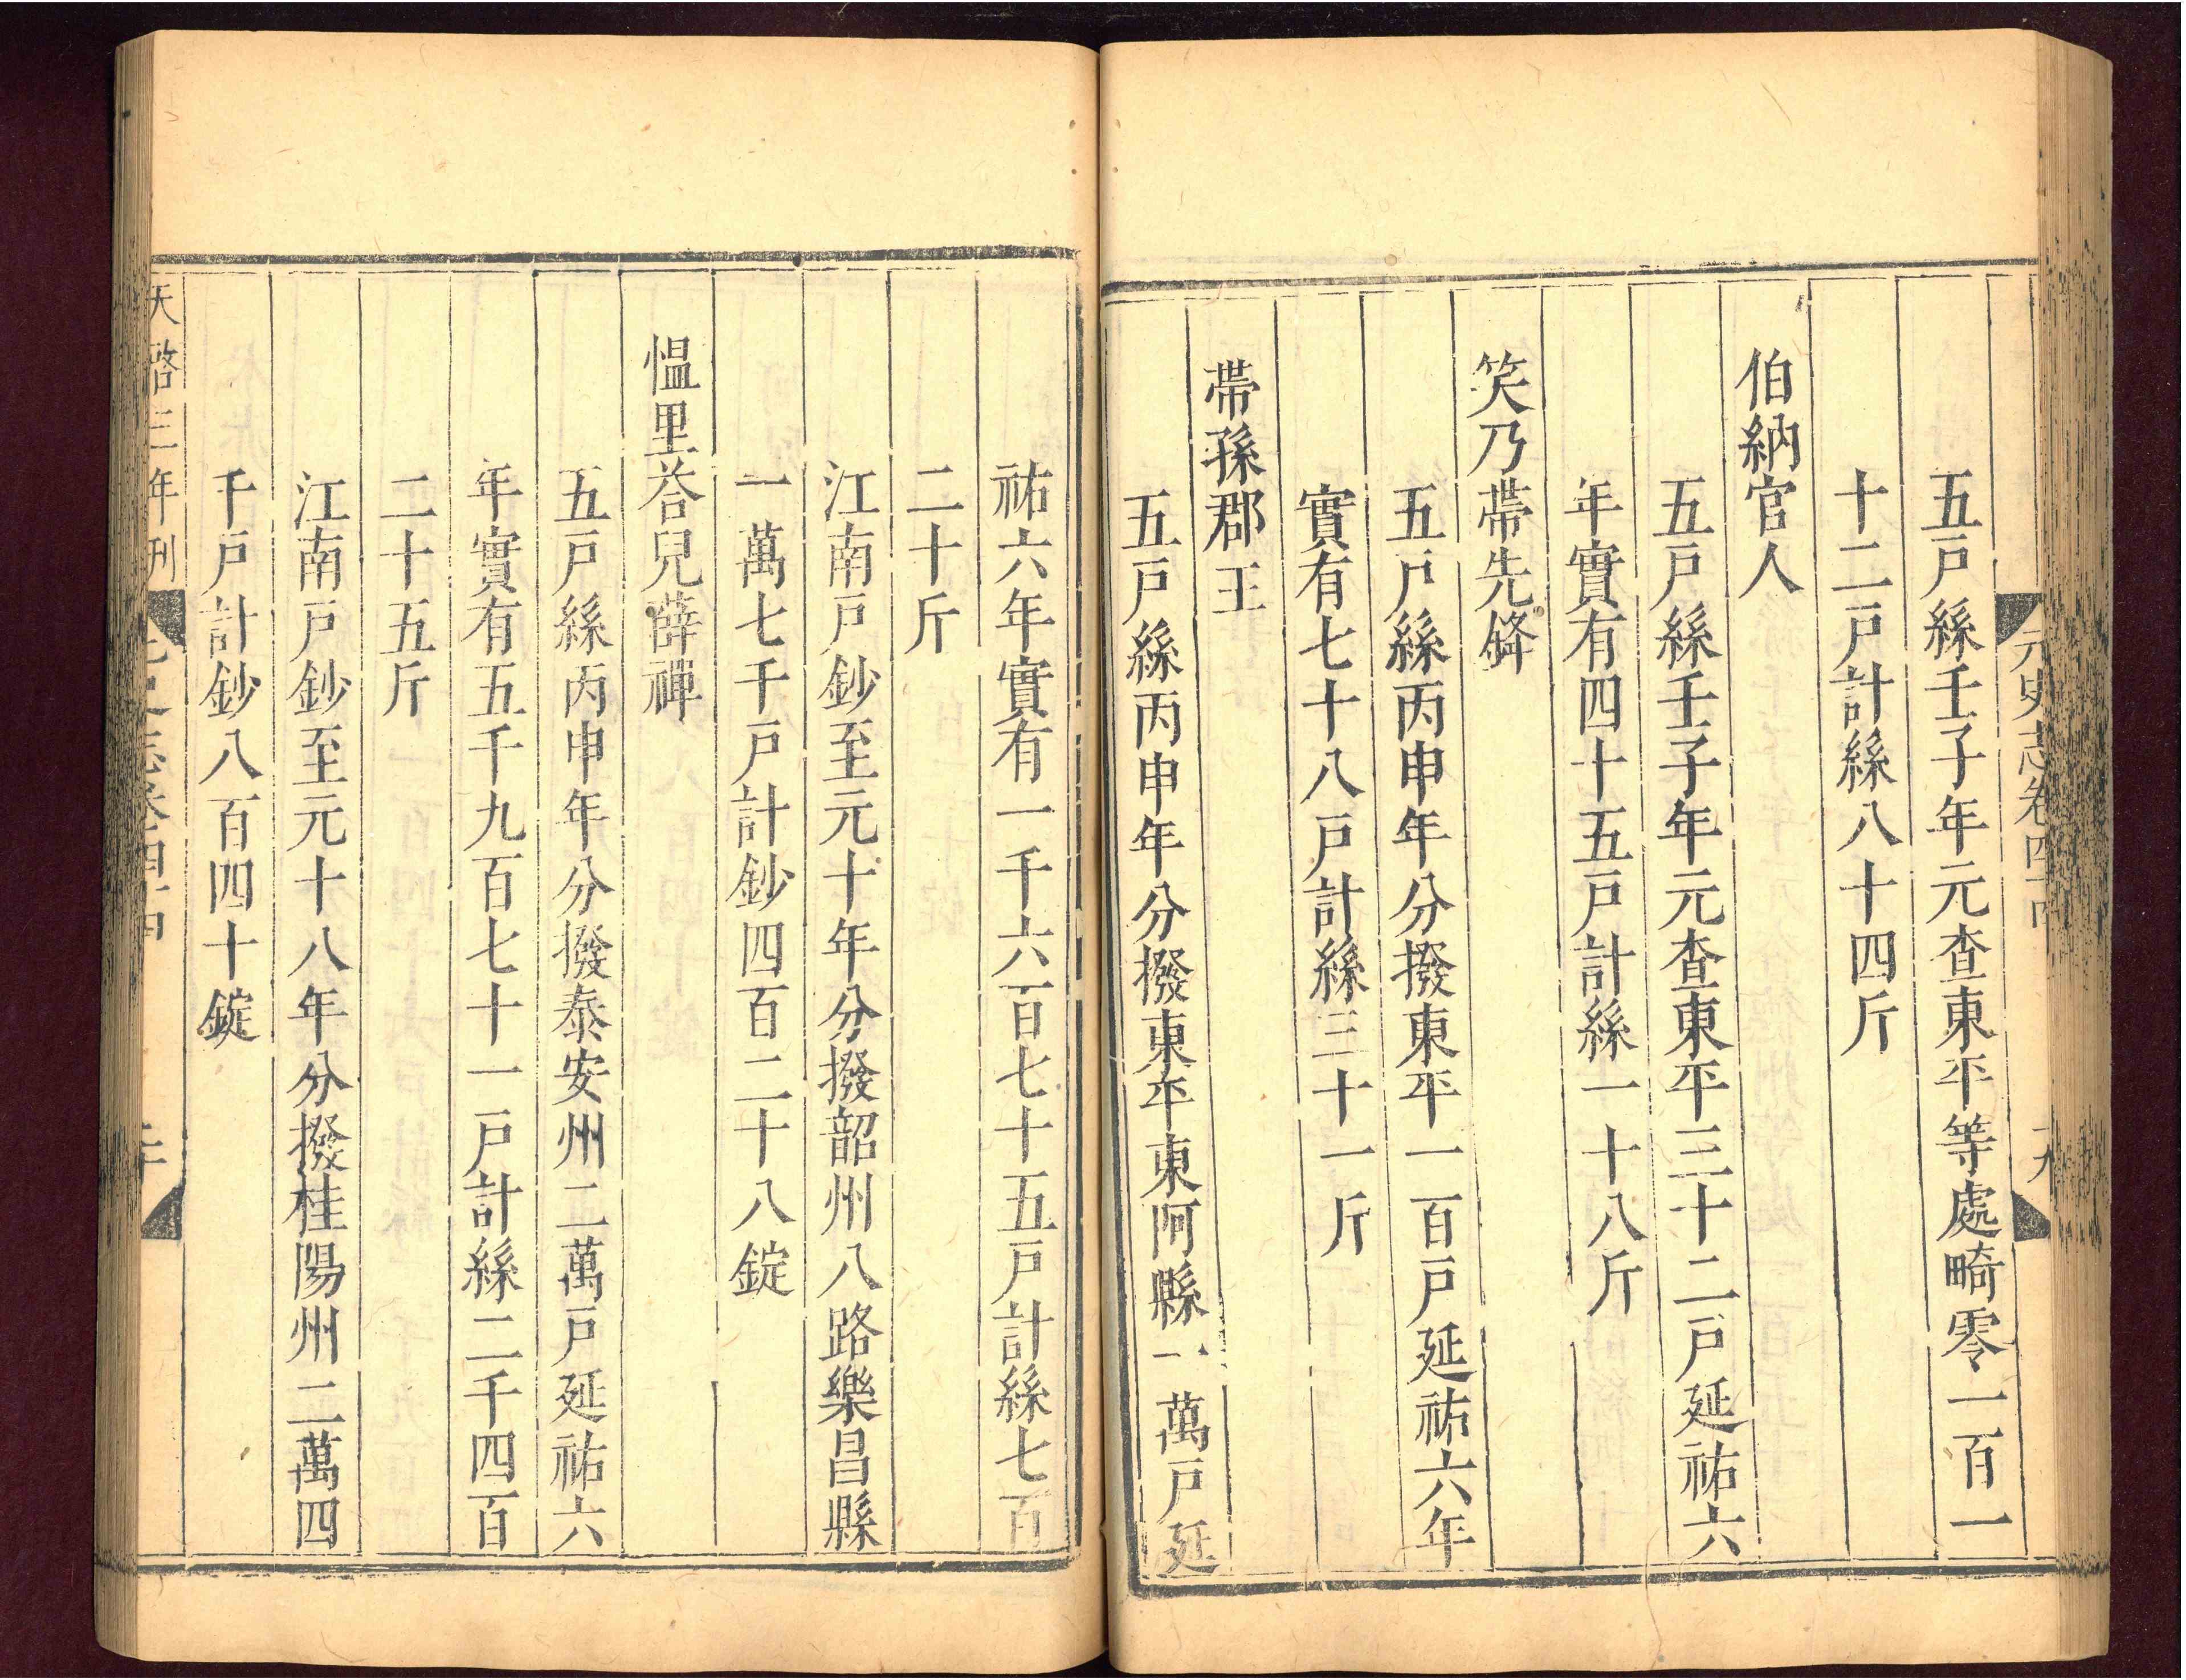 元史志卷四十四
十九
五戸絲壬子年元查東平等處畸零一百一
十二戸計絲八十四斤
伯納官人
五戸絲壬子年元查東平三十二戸延祐六
年實有四十五戸計絲一十八斤
笑乃帶先鋒
五戸絲丙申年分撥東平一百戸延祐六年
實有七十八戸計絲三十一斤
帶孫郡王
五戸絲丙申年分撥東平東阿縣一萬戸延
祐六年實有一千六百七十五戸計絲七百
二十斤
江南戸鈔至元十八年分撥韶州路樂昌縣
一萬七千戸計鈔四百二十八錠
愠里荅兒薛禪
五戸絲丙申年分撥泰安州二萬戸延祐六
年實有五千九百七十一戸計絲二千四百
二十五斤
江南戸鈔至元十八年分撥桂陽州二萬四
千戸計鈔八百四十錠
天啓三年刊
元史志卷四十四
二十